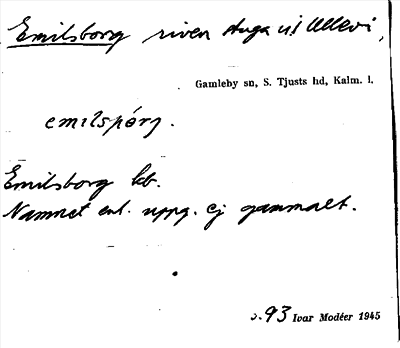 Emilsborg riven stuga u/ Ullevi,
Gamleby sn, S. Tjusts hd, Kalm. l.
emilspórg.
Emilsborg lb.
Namnet enl. uppg. ej gammalt.
s. 93 Ivar Modéer 1945